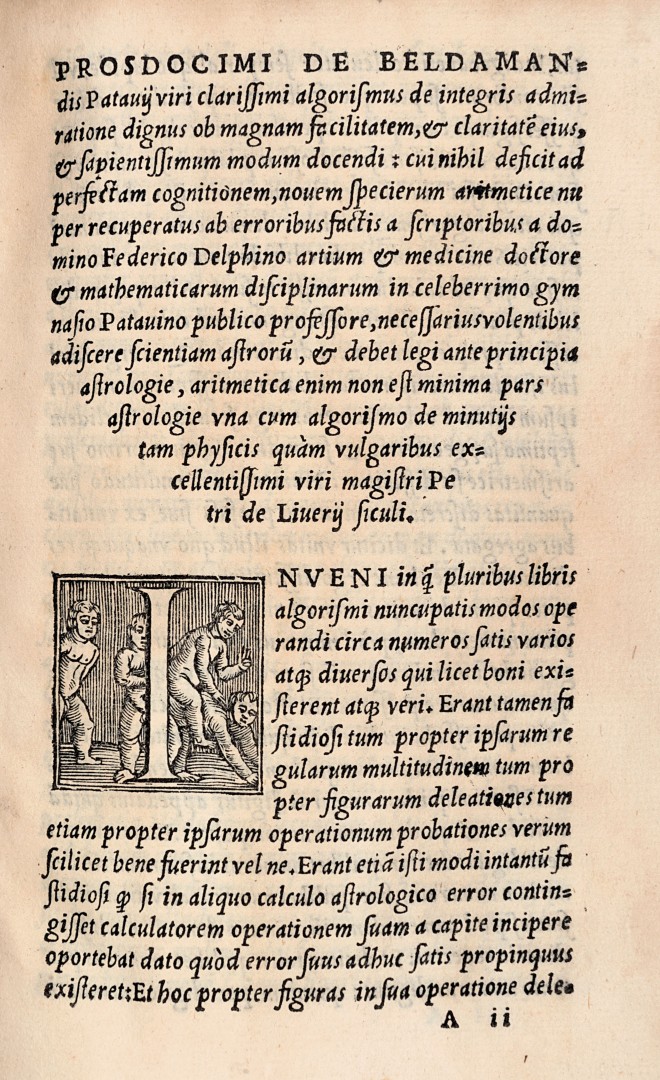 PROSDOCIMI DE BELDAMAN=
dis Patauij viri clarissimi algorismus de integris admi=
ratione dignus ob magnam facilitatem, & claritatē eius,
& sapientissimum modum docendi : cui nihil deficit ad
perfectam cognitionem, nouem specierum aritmetice nu
per recuperatus ab erroribus factis a scriptoribus a do=
mino Federico Delphino artium & medicine doctore
& mathematicarum disciplinarum in celeberrimo gym
nasio Patauino publico professore, necessarius volentibus
adiscere scientiam astrorū, & debet legi ante principia
astrologie, aritmetica enim non est minima pars
astrologie vna cum algorismo de minutijs
tam physicis quàm vulgaribus ex=
cellentissimi viri magistri Pe
tri de Liuerij siculi.
INVENI in q̃ pluribus libris
algorismi nuncupatis modos ope
randi circa numeros satis varios
atq; diuersos qui licet boni exi=
sterent atq; veri. Erant tamen fa
stidiosi tum propter ipsarum re
gularum multitudinem tum pro
pter figurarum deleationes tum
etiam propter ipsarum operationum probationes verum
scilicet bene fuerint vel ne. Erant etiā isti modi intantū fa
stidiosi ꝙ si in aliquo calculo astrologico error contin=
gisset calculatorem operationem suam a capite incipere
oportebat dato quòd error suus adhuc satis propinquus
existeret: Et hoc propter figuras in sua operatione dele=
A ii